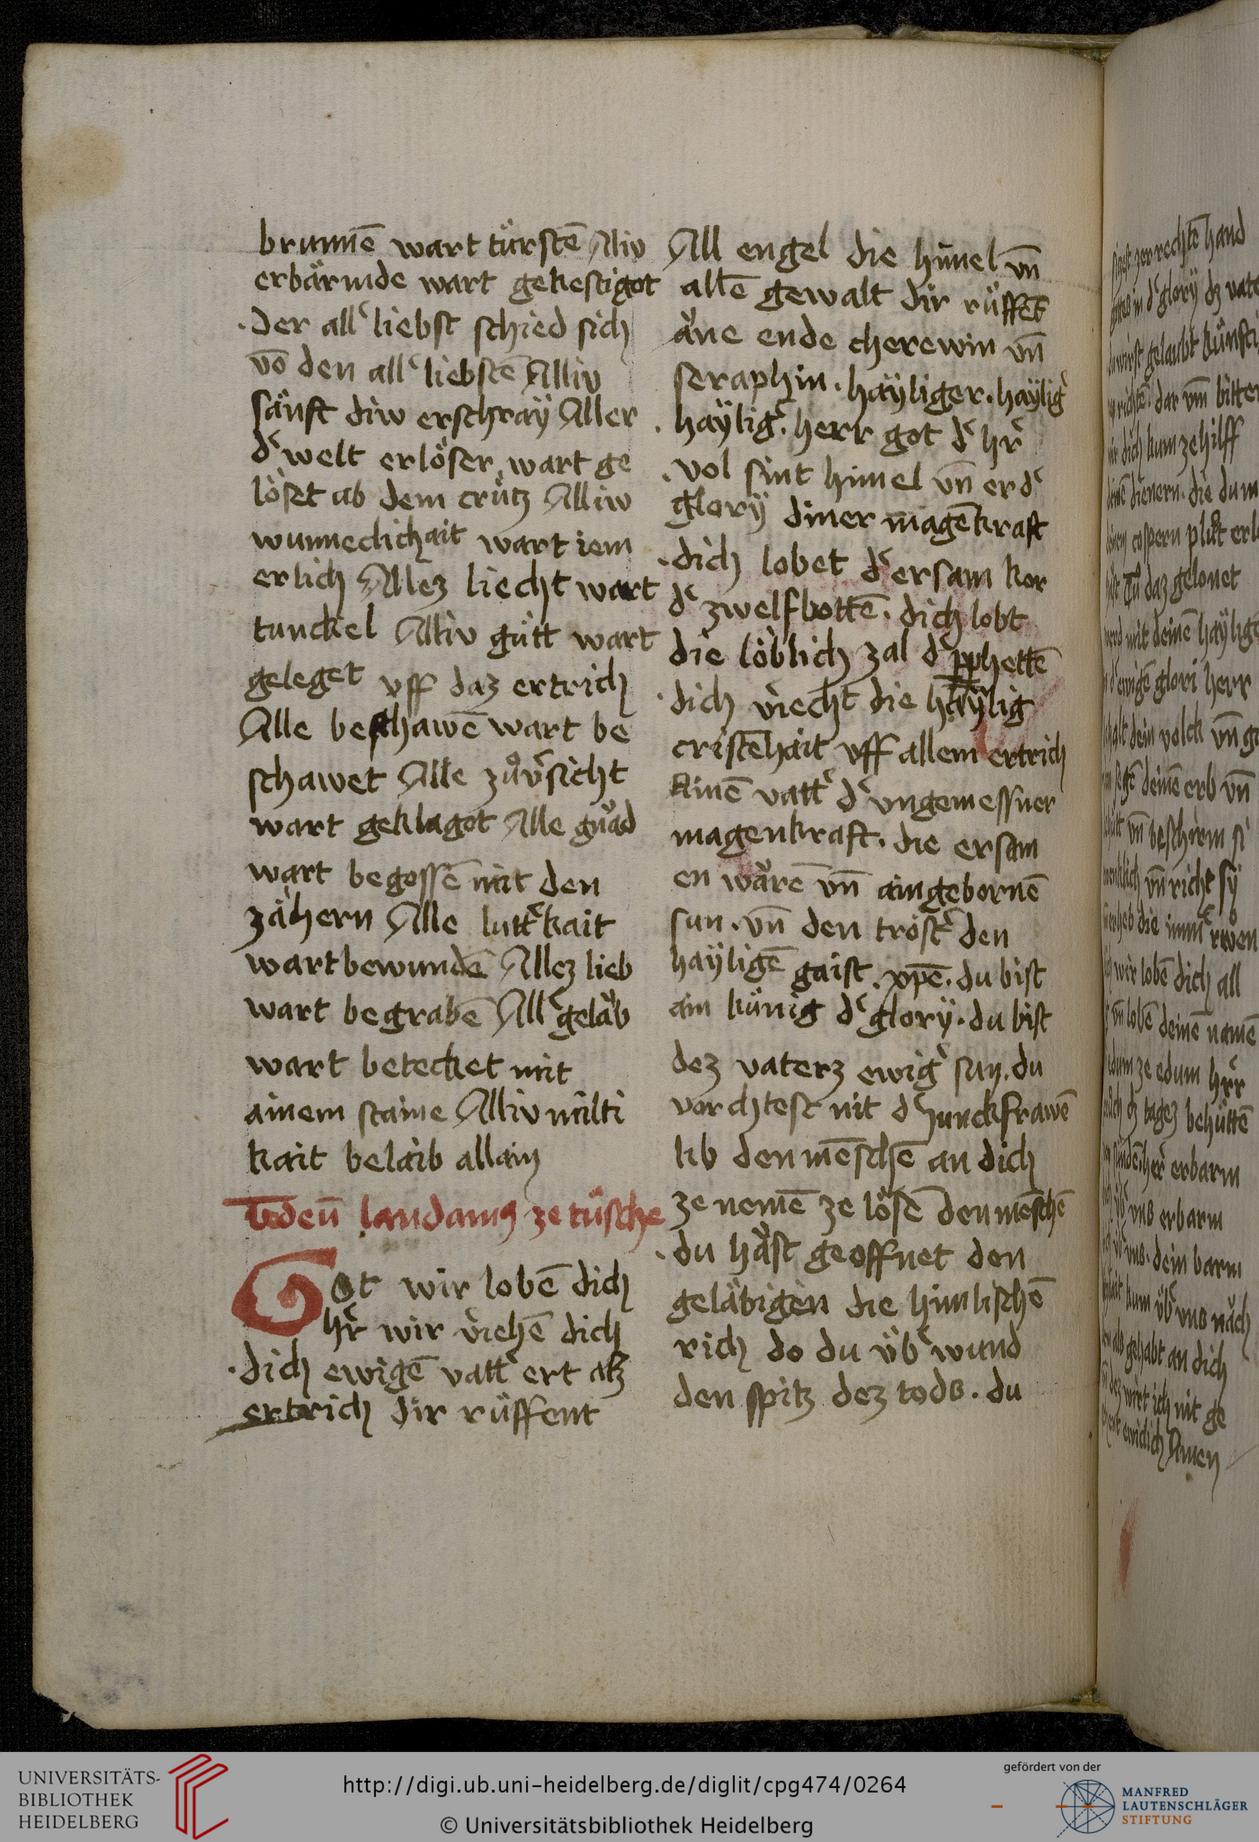 brunnē wart túrstē Alliv
erbärmde wart gekestigot
.Der all͛ liebst schied sich
võ den all͛ liebstē Alliv
sänft diw erschraÿ Aller
d͛ welt erlöser wart ge
löset ab dem crútz Alliw
wunneclichait wart iem
erlich Allez liecht wart
tunckel Alliv gútt wart
geleget vff daz ertrich
Alle beschawē wart be
schawet Alle zův͛sicht
wart geklagot Alle gnäd
wart begossē mit den
zähern Alle lutt͛kait
wart bewundē Allez lieb
wart begrabē All͛ geläb
wart betecket mit
ainem staine Alliv milti
kait belaib allain
Te deū laudamꝰ ze túsche
Got wir lobē dich
hr͛ wir v́iehē dich
.dich ewigē vatt͛ ert alz
ertrich dir rúffent
All engel die himel vn̄
allē gewalt dir rúffēt
äne ende cherewin vn̄
seraphin. haÿliger. haÿlig͛
. haÿlig͛. herr got d͛ hr͛
.vol sint himel vn̄ erd͛
glorÿ diner magēkraft
.dich lobet d͛ ersam kor
d͛ zwelfbottē. dich lobt
die löblich zal d͛ ꝓphettē
.dich v́iecht die haÿlig
cristēhait vff allem ertrich
Ainē vatt͛ d͛ vngemessner
magenkraft. die ersam
en wärē vn̄ aingebornē
sun. vn̄ den tröst͛ den
haÿligē gaist. xpē. du bist
ain kúnig d͛ glorÿ. du bist
dez vaterz ewig͛ sun. du
vorchtest nit d͛ Junckfrawē
lib den mēschē an dich
ze nemē ze lösē den mēschē
.du häst geoffnet den
geläbigen die himlischē
rich do du v́b͛wund
den spitz dez tods. du
zer rechtē hand
in d͛ glorÿ dz vate
gelaubt kúnfti
dar vm̄ bitten
dich kum ze hilff
dienern. die du m
daz gelonet
mit deinē haÿlige
ewigē glori herr
dein volck vn̄
deinē erb vn̄
vn̄ beschirm
vn̄ richt sÿ
wir lobē dich all
lobē deinē namē
ze edum hr͛r
tagez behúttē
her erbarm
vns erbarm
vns. dein barm
kum v́b͛ vns näch
gehabt an dich
wirt ich nit ge
ewiclich Amen
UNIVERSITÄTS-
BIBLIOTHEK
HEIDELBERG
http://digi.ub.uni-heidelberg.de/diglit/cpg474/0264
© Universitätsbibliothek Heidelberg
gefördert von der
MANFRED
LAUTENSCHLÄGER
STIFTUNG